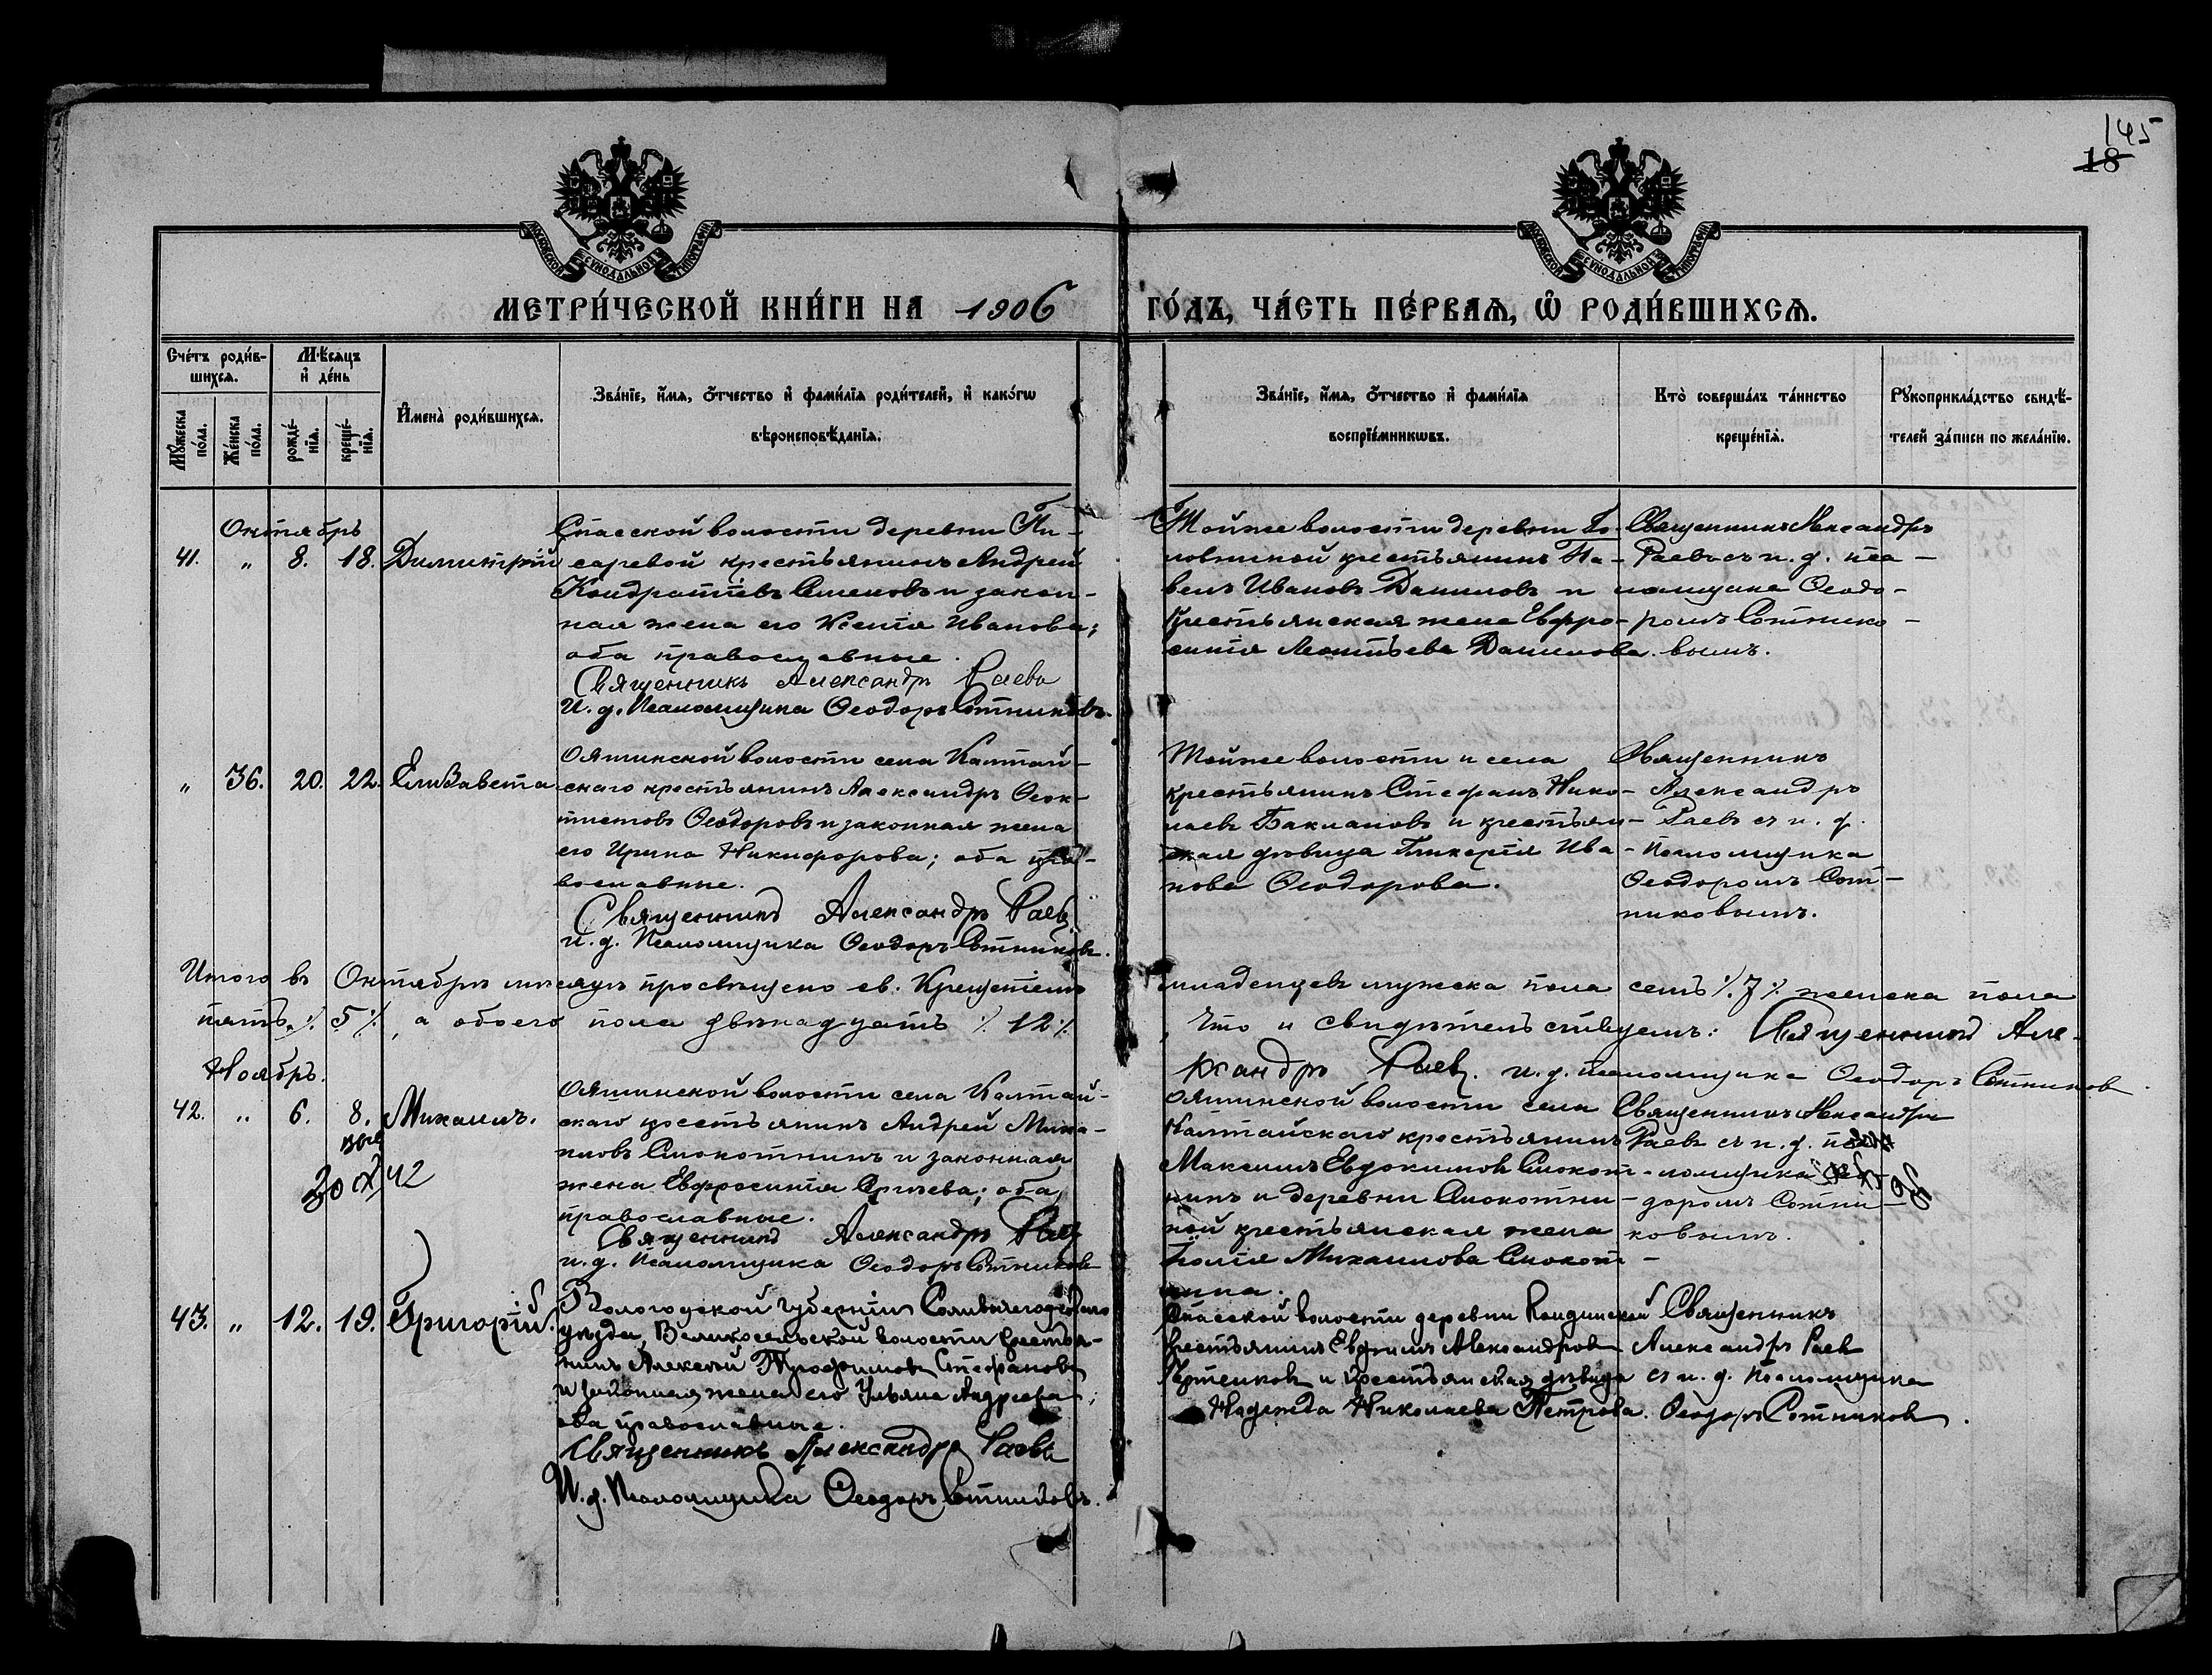 145
18
МОСКОВСКОЙ СѴНОДАЛЬНОЙ ТИПОГРАФІИ
МОСКОВСКОЙ СѴНОДАЛЬНОЙ ТИПОГРАФІИ
МЕТРИ́ЧЕСКОЙ КНИ́ГИ НА 1906 ГО́ДЪ, ЧА́СТЬ ПЕ́РВАѦ, Ѽ РОДИ́ВШИХСѦ.
Счéтъ роди́в-
шихсѧ.
Мѣ́сѧцъ
и҆ де́нь
Мꙋ́жеска
по́ла.
Же́нска
по́ла.
рожде́-
нїѧ.
креще́-
нїѧ.
И҆мена̀ роди́вшихсѧ.
Зва́нїе, и҆́мѧ, ѻ҆́тчество и҆ фами́лїѧ роди́телей, и҆ како́гѡ
вѣроисповѣ́данїѧ.
Зва́нїе, и҆́мѧ, ѻ҆́тчество и҆ фами́лїѧ
воспрїе́мникѡвъ.
Кто̀ соверша́лъ та́инство
креще́нїѧ.
Рꙋкоприкла́дство свидѣ́-
телей за́писи по жела́нїю.
Октябрь
41. " 8. 18. Димитрій
Спасской волости деревни Пи-
саревой крестьянинъ Андрей
Кондратіевъ Семеновъ и закон-
ная жена его Ксенія Иванова;
оба православные.
Священникъ Александръ Раевъ
И. д. Псаломщика Ѳеодоръ Сотниковъ.
Тойже волости деревни
крестьянинъ Па-
велъ Ивановъ Даниловъ и
крестьянская жена Евфро-
синія Леонтьева Данилова.
Священникъ Александръ
Раевъ съ и. д. пса-
ломщика Ѳеодо-
ромъ Сотнико-
вымъ.
" 36. 20. 22. Елизавета
Ояшинской волости села Калтай-
скаго крестьянинъ Александръ Ѳеок-
тистовъ Ѳеодоровъ и законная жена
его Ирина Никифорова; оба пра-
вославные.
Священникъ Александръ Раевъ
и. д. Псаломщика Ѳеодоръ Сотниковъ.
Тойже волости и села
крестьянинъ Стефанъ Нико-
лаевъ Баклановъ и крестьян-
ская дѣвица Гликерія Ива-
нова Ѳеодорова.
Священникъ
Александръ
Раевъ съ и. д.
Псаломщика
Ѳеодоромъ Сот-
никовымъ.
Итого въ Октябрѣ мѣсяцѣ просвѣщено св. Крещеніемъ младенцевъ мужеска пола семь ٪ 7 ٪ женска пола
пять ٪ 5 ٪, а обоего пола двѣнадцать ٪ 12 ٪, что и свидѣтельствуемъ: Священникъ Але-
ксандръ Раевъ. и. д. псаломщика Ѳеодоръ Сотниковъ.
Ноябрь.
42. " 6. 8. Михаилъ.
42
Ояшинской волости села Калтай-
скаго крестьянинъ Андрей Миха-
иловъ Смокотнинъ и законная
жена Евфросинія; оба
православные.
Священникъ Александръ Раевъ
и. д. Псаломщика Ѳеодоръ Сотниковъ
Ояшинской волости села
Калтайскаго крестьянинъ
Максимъ Евдокимовъ Смокот-
нинъ и деревни Смокотни-
ной крестьянская жена
Михаилова Смокот-
нина.
Священникъ Александръ
Раевъ съ и. д. пса-
ломщика Ѳео-
доромъ Сотни-
ковымъ.
43. " 12. 19. Григорій.
Вологодской губерніи Сольвычегодскаго
уѣзда, Великосельской волости крестья-
нинъ Алексѣй Трофимовъ Стефановъ
и законная жена его Ульяна Андреева;
оба православные.
Священникъ Александръ Раевъ
И. д. Псаломщика Ѳеодоръ Сотниковъ.
Спасской волости деревни Кандинской
крестьянинъ Евфимъ Александровъ
и крестьянская дѣвица
Надежда Николаева Петрова.
Священникъ
Александръ Раевъ
съ и. д. Псаломщика
Ѳеодоръ Сотниковъ.